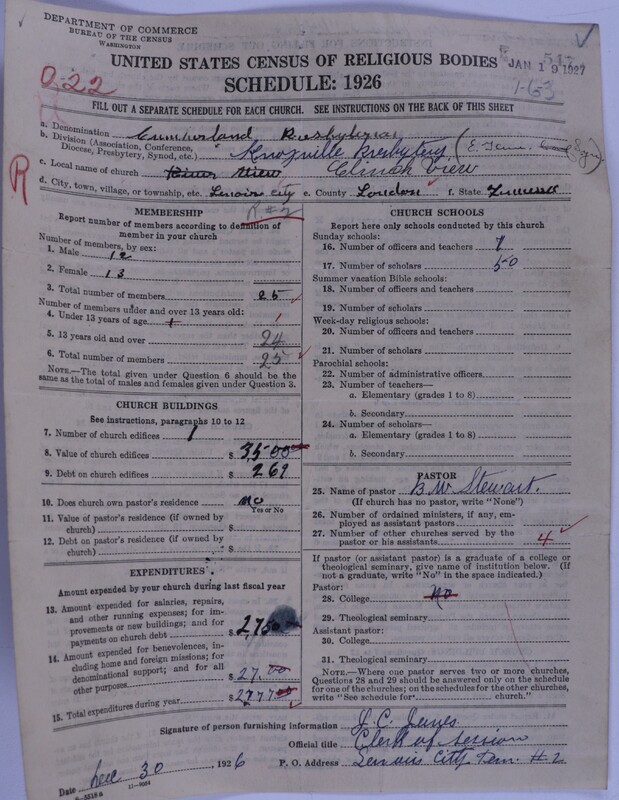 DEPARTMENT OF COMMERCE
BUREAU OF THE CENSUS
WASHINGTON
UNITED STATES CENSUS OF RELIGIOUS BODIES
JAN 19 1927
SCHEDULE: 1926
022
1-63
FILL OUT A SEPARATE SCHEDULE FOR EACH CHURCH. SEE INSTRUCTIONS ON THE BACK OF THIS SHEET
R
a. Denomination Cumberland Presbyterian
b. Division (Association, Conference, Diocese, Presbytery, Synod, etc.) Knoxville Presbytery (E. Tenn. Syn)
c. Local name of church River View Clinch View
d. City, town, village, or township, etc. Lenoir City e. County Loudon f. State Tennessee
R#2
MEMBERSHIP
Report number of members according to definition of
member in your church
Number of members, by sex:
1. Male 12
2. Female 13
3. Total number of members 25
Number of members under and over 13 years old:
4. Under 13 years of age 1 1
5. 13 years old and over 24
6. Total number of members 25
NOTE.—The total given under Question 6 should be the
same as the total of males and females given under Question 3.
CHURCH BUILDINGS
See instructions, paragraphs 10 to 12
7. Number of church edifices 1
8. Value of church edifices $ 3500
9. Debt on church edifices $ 269
10. Does church own pastor's residence No
Yes or No
11. Value of pastor's residence (if owned by
church) $
12. Debt on pastor's residence (if owned by
church) $
EXPENDITURES
Amount expended by your church during last fiscal year
13. Amount expended for salaries, repairs,
and other running expenses; for im-
provements or new buildings; and for
payments on church debt $ 2750
14. Amount expended for benevolences, in-
cluding home and foreign missions; for
denominational support; and for all
other purposes $ 27.00
15. Total expenditures during year $ 2777
CHURCH SCHOOLS
Report here only schools conducted by this church
Sunday schools:
16. Number of officers and teachers 7
17. Number of scholars 50
Summer vacation Bible schools:
18. Number of officers and teachers
19. Number of scholars
Week-day religious schools:
20. Number of officers and teachers
21. Number of scholars
Parochial schools:
22. Number of administrative officers
23. Number of teachers—
a. Elementary (grades 1 to 8)
b. Secondary
24. Number of scholars—
a. Elementary (grades 1 to 8)
b. Secondary
PASTOR
25. Name of pastor B. W. Stewart.
(If church has no pastor, write "None")
26. Number of ordained ministers, if any, em-
ployed as assistant pastors
27. Number of other churches served by the
pastor or his assistants 4
If pastor (or assistant pastor) is a graduate of a college or
theological seminary, give name of institution below. (If
not a graduate, write "No" in the space indicated.)
Pastor:
28. College No
29. Theological seminary
Assistant pastor:
30. College
31. Theological seminary
NOTE.—Where one pastor serves two or more churches,
Questions 28 and 29 should be answered only on the schedule
for one of the churches; on the schedules for the other churches,
write "See schedule for church."
Signature of person furnishing information J. C. Jones
Official title Clerk of Session
Date Dec 30, 1926 P. O. Address Lenoir City Tenn #2
8-5518a 11-9084